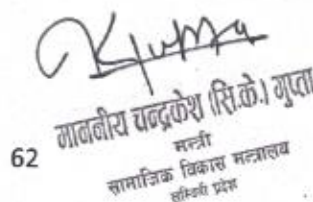 माननीय चन्द्रकेश (सि.के.) गुप्ता
62
मन्त्री
सामाजिक विकास मन्त्रालय
लुम्बिनी प्रदेश